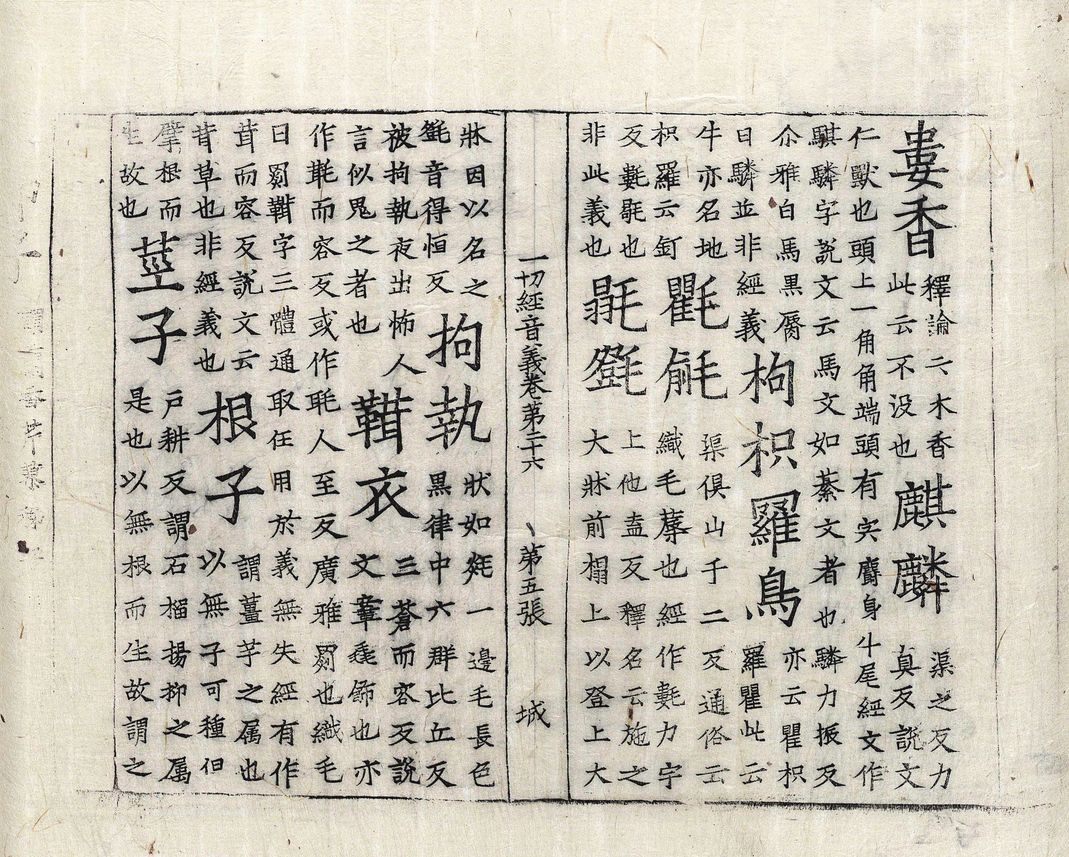 婁香
釋論云木香
此云不没也
麒麟
渠之反力
真反說文
仁獸也頭上一角角端頭有宍麕身牛尾經文作
騏驎字說文云馬文如綦文者也驎力振反
尒雅白馬黑脣
曰驎並非經義
枸枳羅鳥
亦云瞿枳
羅瞿此云
牛亦名地
枳羅云釘
氍毹
渠俱山于二反通俗云
織毛蓐也經作氀力宇
反氀毼也
非此義也
毾㲪
上他盍反釋名云施之
大牀前榻上以登上大
一切經音義卷第二十六
第五張
城
牀因以名之
㲪音得恒反
拘執
狀如㲚一邊毛長色
黑律中六群比丘反
被拘執夜出怖人
言似鬼之者也
䩸衣
三蒼而容反說
文章毳飾也亦
作㲨而容反或作毦人至反廣雅罽也織毛
曰罽䩸字三體通取任用於義無失經有作
茸而容反說文云
茸草也非經義也
根子
謂薑芋之属也
以無子可種但
擘根而
生故也
莖子
戶耕反謂石榴揚柳之属
是也以無根而生故謂之